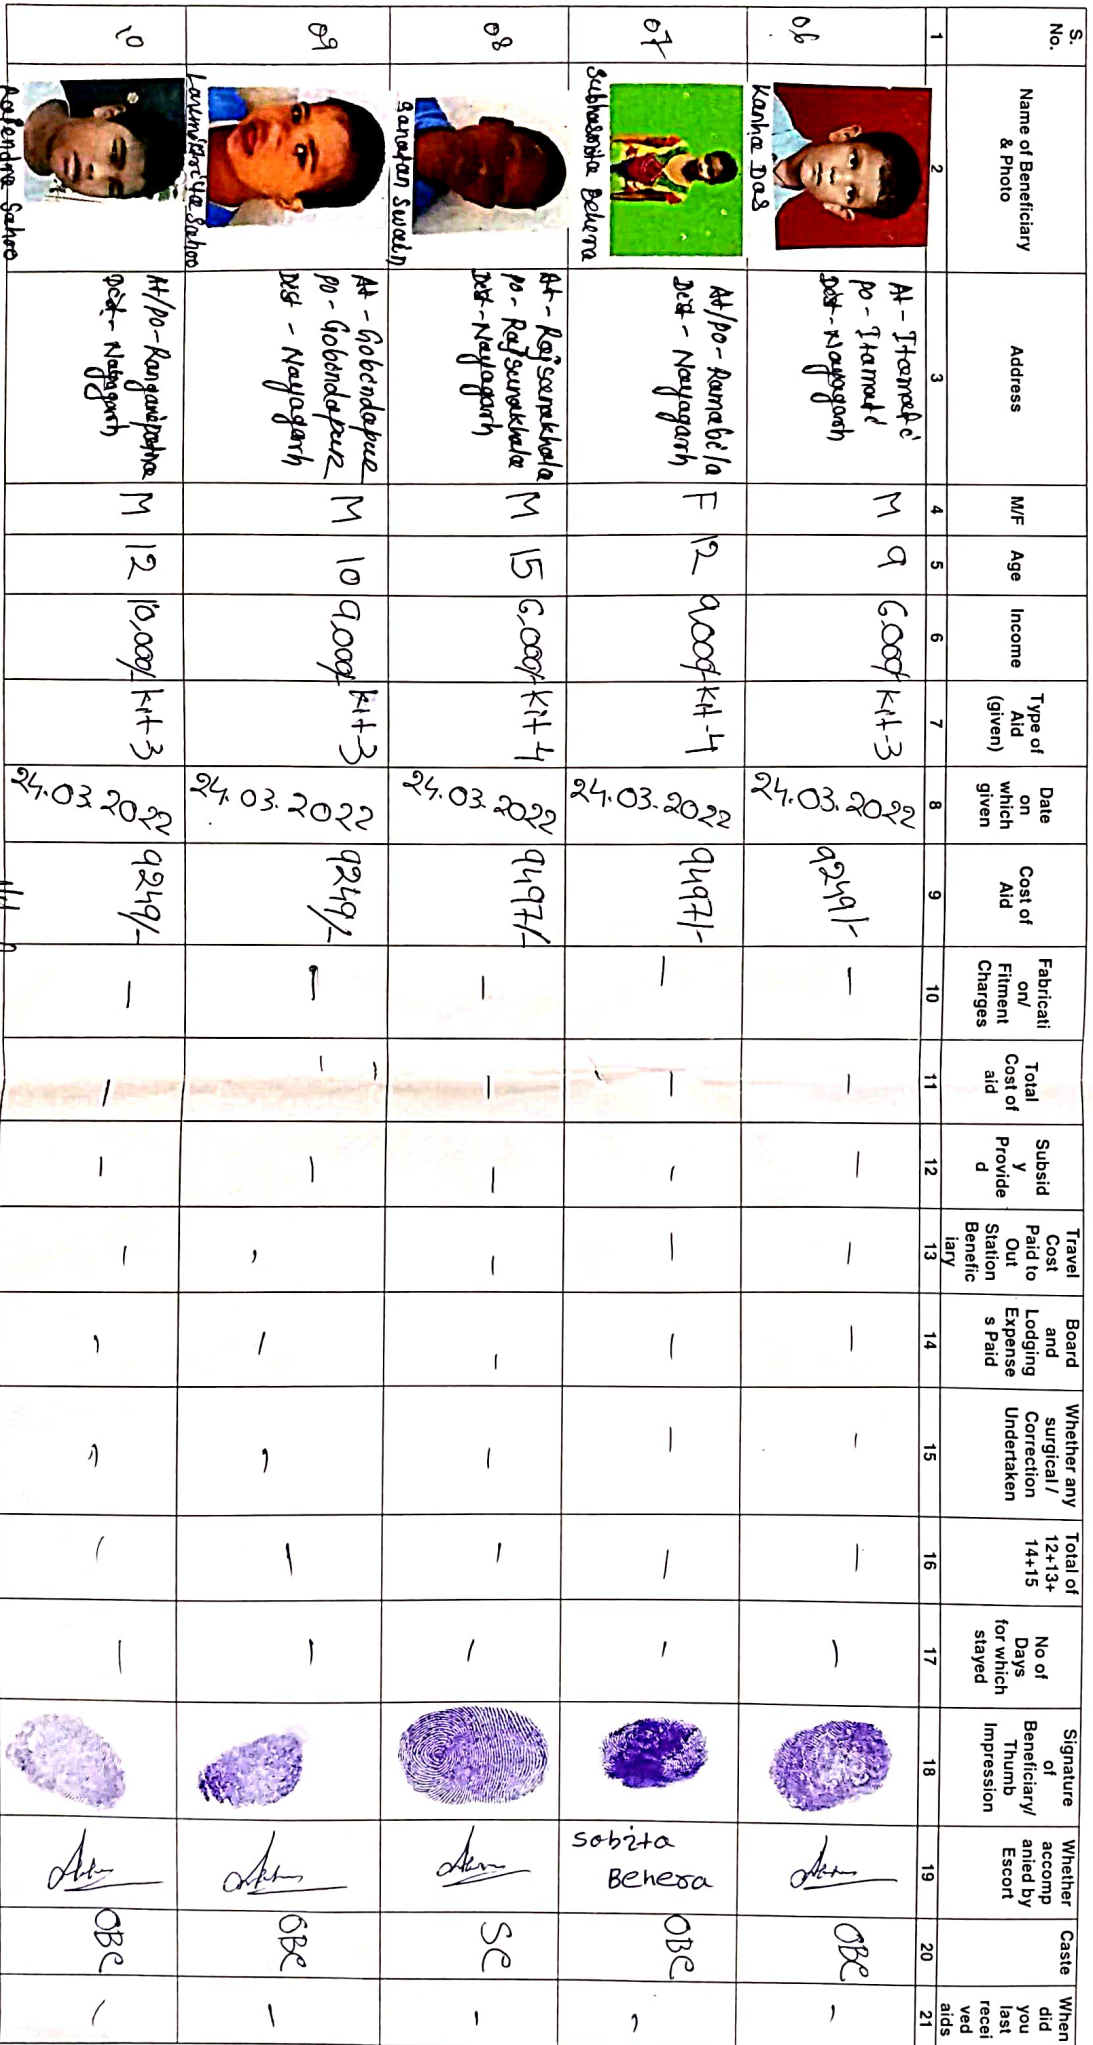 S. No.
Name of Beneficiary & Photo
Address
M/F
Age
Income
Type of Aid (given)
Date on which given
Cost of Aid
Fabricati on/ Fitment Charges
Total Cost of aid
Subsid y Provide d
Travel Cost Paid to Out Station Benefic iary
Board and Lodging Expense s Paid
Whether any surgical / Correction Undertaken
Total of 12+13+ 14+15
No of Days for which stayed
Signature of Beneficiary/ Thumb Impression
Whether accomp anied by Escort
Caste
When did you last recei ved aids
1 2 3 4 5 6 7 8 9 10 11 12 13 14 15 16 17 18 19 20 21
06
Kanha Das
At - Itamati
po - Itamati
Dist - Nayagarh
M
9
6000/-
Kit-3
24.03.2022
9249/-
— — — — — — — —
OBC
–
07
Subhasmita Behera
At/po - Ramabila
Dist - Nayagarh
F
12
9000/-
Kit-4
24.03.2022
9497/-
— — — — — — — —
Sobita
Behera
OBC
–
08
Sanatan Swain
At - Rajsunakhala
po - Rajsunakhala
Dist - Nayagarh
M
15
6000/-
Kit-4
24.03.2022
9497/-
— — — — — — — —
SC
–
09
Sahoo
At - Gobindapur
po - Gobindapur
Dist - Nayagarh
M
10
9,000/-
Kit-3
24.03.2022
9249/-
— — — — — — — —
OBC
–
10
Rajendra Sahoo
At/po -
Dist - Nayagarh
M
12
10,000/-
Kit-3
24.03.2022
9249/-
— — — — — — — —
OBC
–